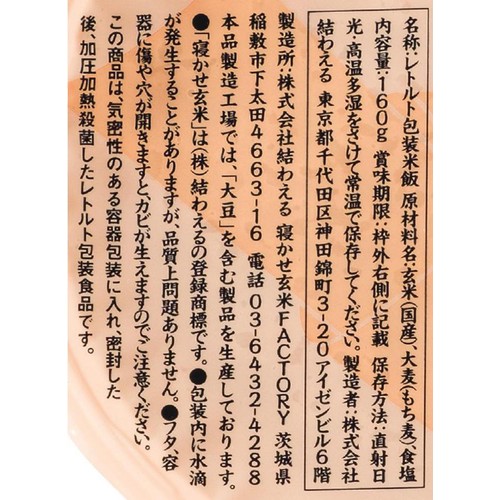 名称:レトルト包装米飯 原材料名:玄米(国産)、大麦(もち麦)、食塩
内容量:160g 賞味期限:枠外右側に記載 保存方法:直射日
光・高温多湿をさけて常温で保存してください。製造者:株式会社
結わえる 東京都千代田区神田錦町3-20アイゼンビル6階
製造所:株式会社結わえる 寝かせ玄米FACTORY 茨城県
稲敷市下太田4663-16 電話 03-6432-4288
本品製造工場では、「大豆」を含む製品を生産しております。
●「寝かせ玄米」は(株)結わえるの登録商標です。●包装内に水滴
が発生することがありますが、品質上問題ありません。●フタ、容
器に傷や穴が開きますと、カビが生えますのでご注意ください。
この商品は、気密性のある容器包装に入れ、密封した
後、加圧加熱殺菌したレトルト包装食品です。